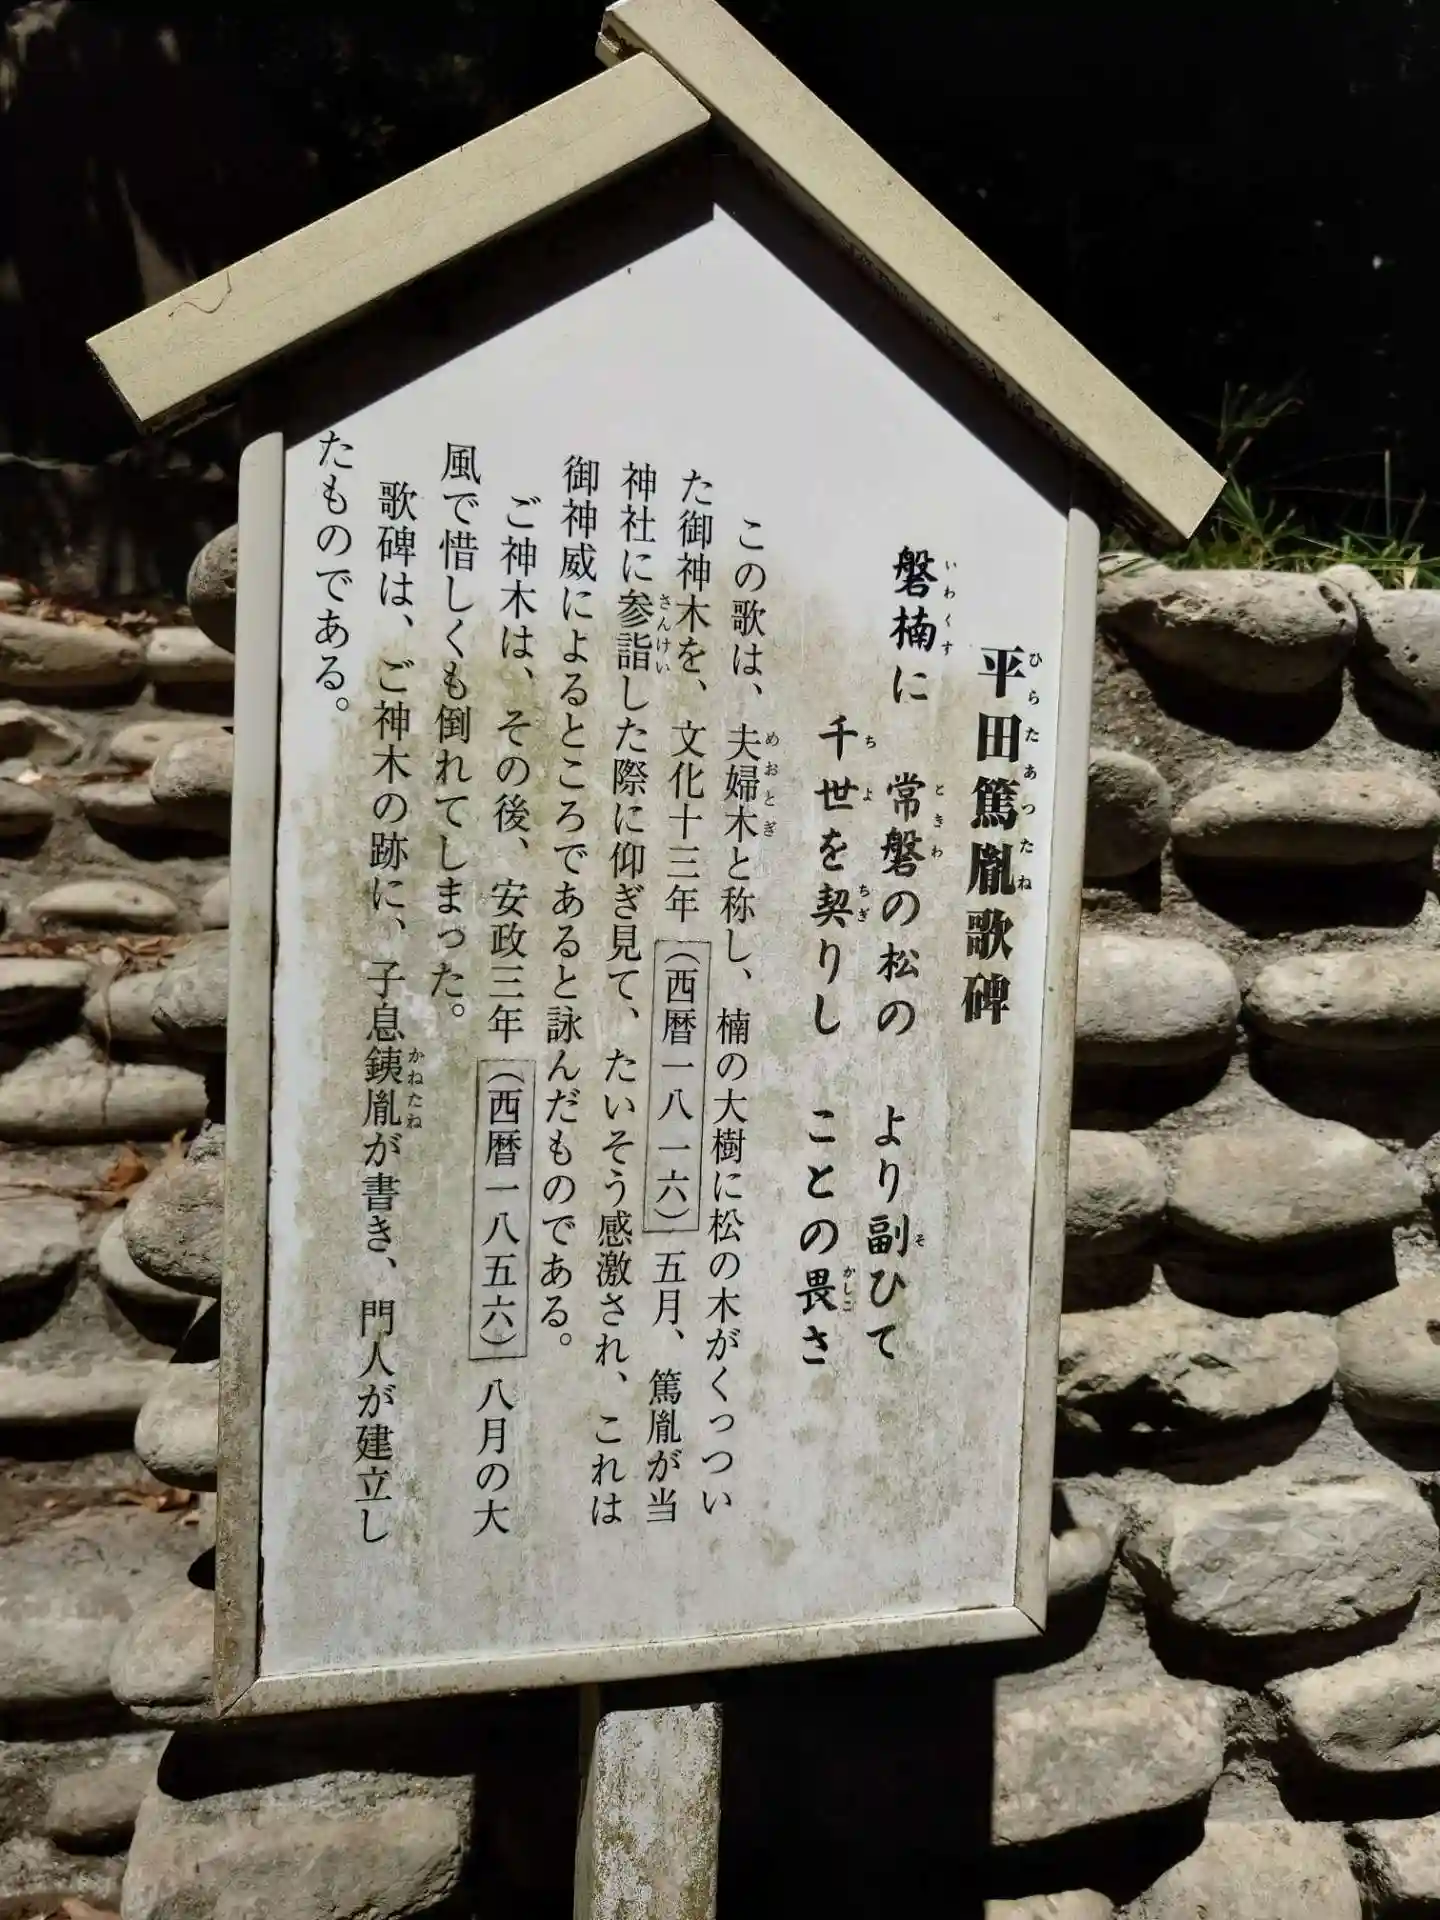 平田篤胤歌碑
磐楠に　常磐の松の　より副ひて
千世を契りし　ことの畏さ
この歌は、夫婦木と称し、楠の大樹に松の木がくっつい
た御神木を、文化十三年（西暦一八一六）五月、篤胤が当
神社に参詣した際に仰ぎ見て、たいそう感激され、これは
御神威によるところであると詠んだものである。
ご神木は、その後、安政三年（西暦一八五六）八月の大
風で惜しくも倒れてしまった。
歌碑は、ご神木の跡に、子息銕胤が書き、門人が建立し
たものである。